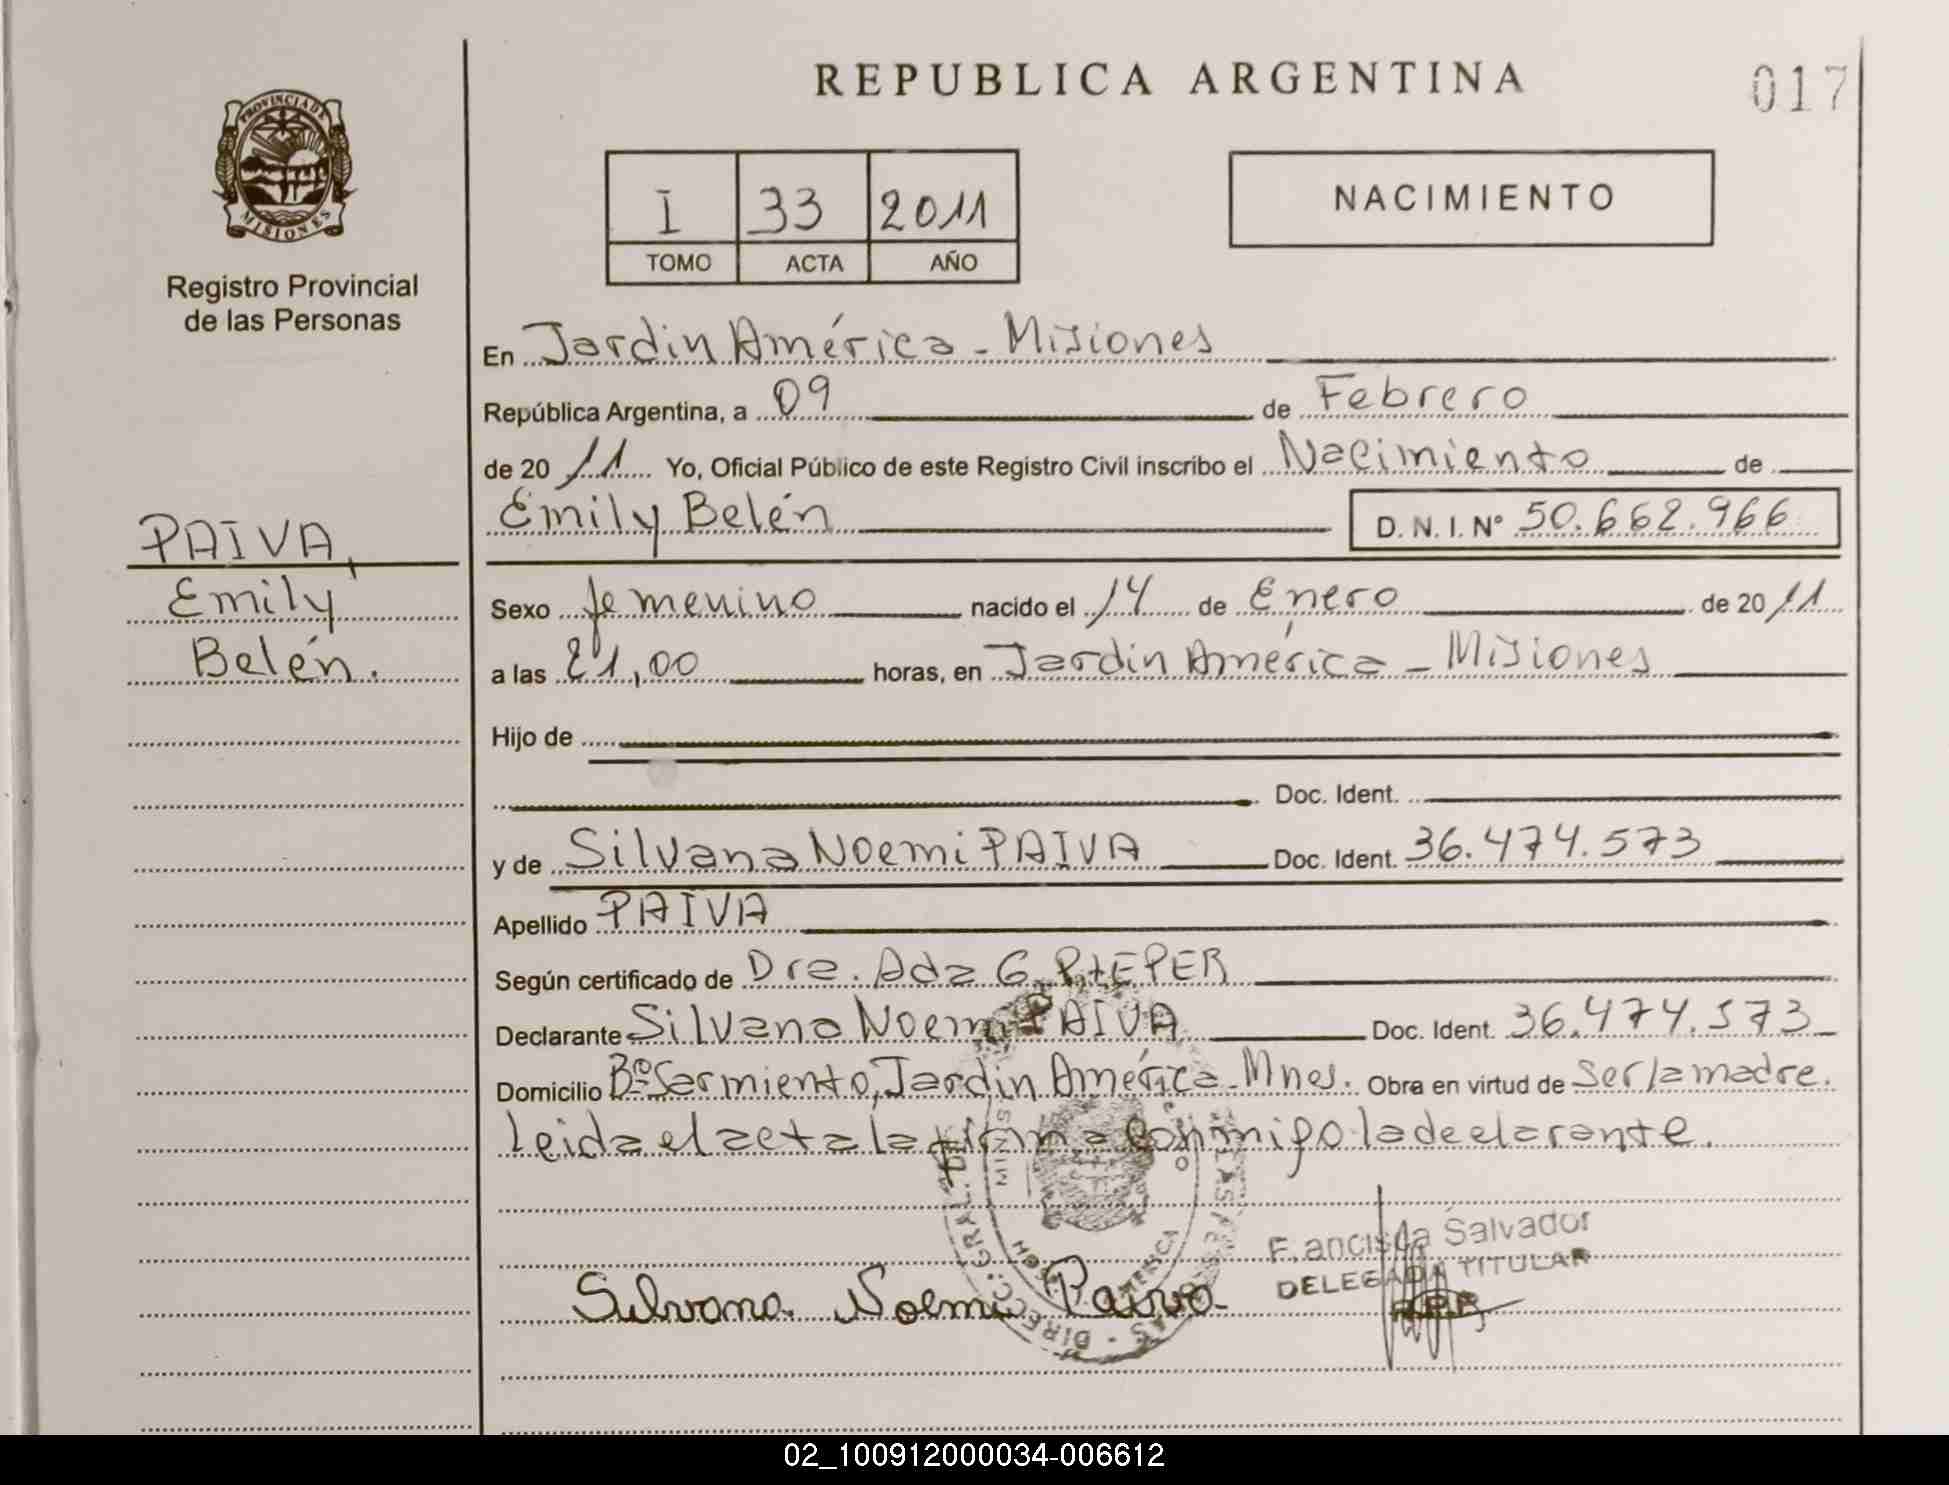 REPUBLICA ARGENTINA
017
PROVINCIA DE
MISIONES
Registro Provincial
de las Personas
I 33 2011
TOMO ACTA AÑO
NACIMIENTO
En Jardin América - Misiones
República Argentina, a 09 de Febrero
de 20 11 Yo, Oficial Público de este Registro Civil inscribo el Nacimiento de
Emily Belén D.N.I.Nº 50.662.966
PAIVA,
Emily
Belén.
Sexo femenino nacido el 14 de Enero de 20 11
a las 21,00 horas, en Jardin América - Misiones
Hijo de
Doc. Ident.
y de Silvana Noemi PAIVA Doc. Ident. 36.474.573
Apellido PAIVA
Según certificado de Dra. Ada G. PIEPER
Declarante Silvana Noemi PAIVA Doc. Ident. 36.474.573
Domicilio Bº Sarmiento, Jardin América - Mnes. Obra en virtud de ser la madre.
Leida el acta la firma conmigo la declarante.
Silvana Noemi Paiva
Francisca Salvador
DELEGADA TITULAR
R.P.P.
02_100912000034-006612